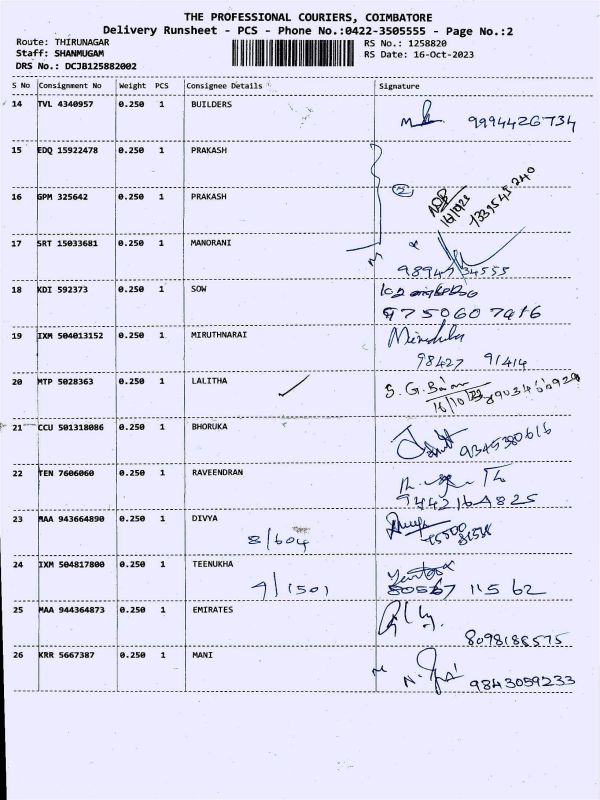 THE PROFESSIONAL COURIERS, COIMBATORE
Delivery Runsheet - PCS - Phone No.:0422-3505555 - Page No.:2
Route: THIRUNAGAR
RS No.: 1258820
Staff: SHANMUGAM
RS Date: 16-Oct-2023
DRS No.: DCJB125882002
S No Consignment No Weight PCS Consignee Details Signature
14 TVL 4340957 0.250 1 BUILDERS
9994426734
15 EDQ 15922478 0.250 1 PRAKASH
16 GPM 325642 0.250 1 PRAKASH
2
17 SRT 15033681 0.250 1 MANORANI
18 KDI 592373 0.250 1 SOW
9750607916
19 IXM 504013152 0.250 1 MIRUTHNARAI
98427 91414
20 MTP 5028363 0.250 1 LALITHA
S. G.
16/10/23
21 CCU 501318086 0.250 1 BHORUKA
22 TEN 7606060 0.250 1 RAVEENDRAN
23 MAA 943664890 0.250 1 DIVYA
8/604
24 IXM 504817800 0.250 1 TEENUKHA
9/1501
25 MAA 944364873 0.250 1 EMIRATES
8098186575
26 KRR 5667387 0.250 1 MANI
9843059233